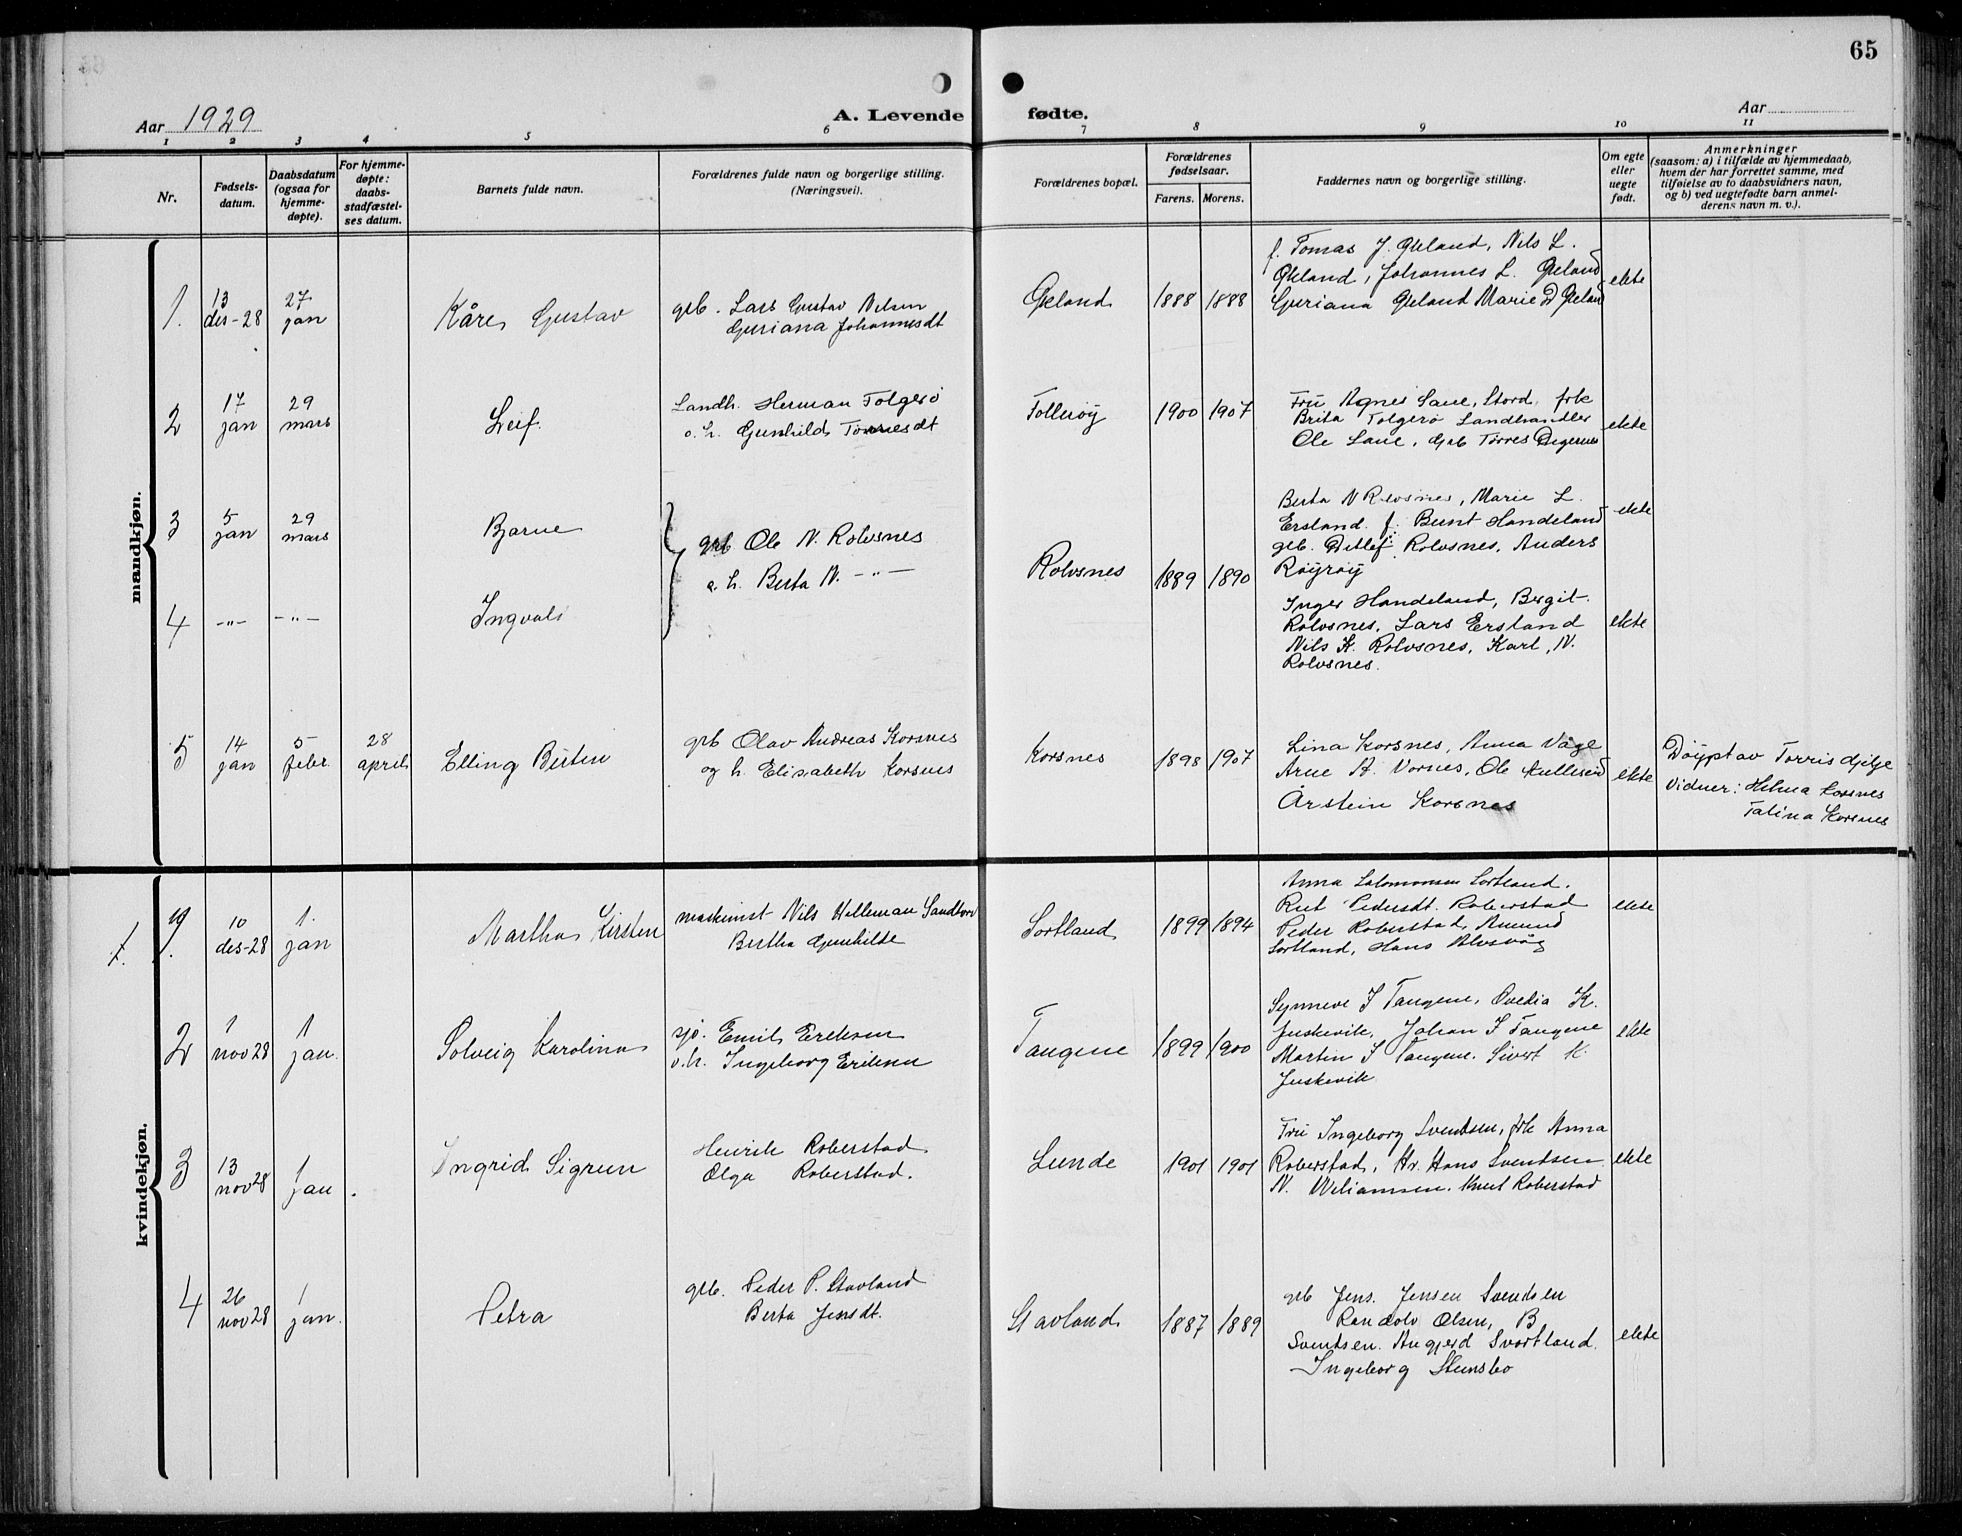 65
Aar 1929
A. Levende fødte.
Aar
1 2 3 4 5 6 7 8 9 10 11
Nr.
Fødsels-
datum.
Daabsdatum
(ogsaa for
hjemme-
døpte).
For hjemme-
døpte:
daabs-
stadfæstel-
ses datum.
Barnets fulde navn.
Forældrenes fulde navn og borgerlige stilling.
(Næringsvei).
Forældrenes bopæl.
Forældrenes
fødselsaar.
Farens. Morens.
Faddernes navn og borgerlige stilling.
Om egte
eller
uegte
født.
Anmerkninger
(saasom: a) i tilfælde av hjemmedaab,
hvem der har forrettet samme, med
tilføielse av to daabsvidners navn,
og b) ved uegtefødte barn anmel-
derens navn m. v.).
mandkjøn.
1. 13 des-28 27 jan Kåre Gustav
grb. Lars Gustav Nilsen
Guriana Johannesdt
Økland 1888 1888
f. Tomas J. Økland, Nils L.
Økland, Johannes L. Økland
Guriana Økland Marie Økland
ekte
2 17 jan 29 mars Leif.
Landh. Herman Folgerø
o. h. Gunhild Torresdt
Follerøy 1900 1907
Fru Agnes Laue, Stord, frk
Brita Folgerø Landhandler
Ole Laue, grb Torres
ekte
3 5 jan 29 mars Bjarne
grb Ole N. Rolvsnes
o. h. Berta N. -"-
Rolvsnes 1889 1890
Berta N Rolvsnes, Marie L.
Ersland. f. Bernt Handeland
grb. Detlef Rolvsnes, Anders
Røyrøy
ekte
4 -"- -"- Ingvald
Inger Handeland, Bergit
Rolvsnes, Lars Ersland
Nils K. Rolvsnes, Karl, N.
Rolvsnes.
ekte
5 14 jan 5 febr. 28 april Elling Birten
grb Olav Andreas Korsnes
og h. Elisabeth Korsnes
Korsnes 1898 1907
Lina Korsnes, Anna Våge
Arne A. Vornes, Ole
Årstein Korsnes
ekte
Døypt av Torris Gjilje
Vidner: Helma Korsnes
Talina Korsnes
kvindekjøn.
1. 10 des-28 1. jan Martha Kirsten
maskinist Nils Helleman
Bertha Gunhilde
Sortland 1899 1894
Anna Salomonsen Sortland.
Rut Pedersdt. Roberstad
Peder Roberstad, Amund
Sortland, Hans Alvsvåg
ekte
2 1 nov 28 1 jan. Solveig Karolina
sjø. Emil Eriksen
o. h. Ingeborg Eriksen
Tangene 1899 1900
Synneve I Tangene, Ovedia K.
Juskevik, Johan I Tangene
Martin I Tangene. Sivert K.
Juskevik
ekte
3 13 nov 28 1 jan. Ingrid Sigrun
Henrik Roberstad
Olga Roberstad.
Lunde 1901 1901
Fru Ingeborg Svendsen, frk Anna
Roberstad, Hr. Hans Svendsen
N. Weliamsen. Knut Roberstad
ekte
4 26 nov 28 1 jan. Petra
grb. Peder P. Stavland
Berta Jensdt.
Stavland 1887 1889
grb Jens. Jensen Svendsen
Randolv Olsen, B
Svendsen. Angjerd Svortland
Ingeborg Stensbo
ekte